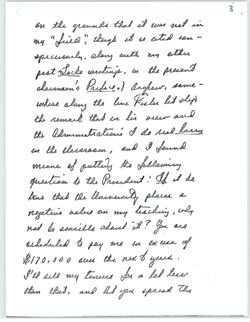 8.
on the grounds that it was not in
my "field," though it is cited con-
spicuously, along with my other
past Locke writings, in the present
chairman's Preface.) Anyhow, some-
where along the line Fisher let slip
the remark that in his view and
the Administration's I do real harm
in the classroom, and I found
means of putting the following
question to the President: If it be
true that the University places a
negative value on my teaching, why
not be sensible about it? You are
scheduled to pay me in excess of
$170,000 over the next years.
I'll sell my tenure for a lot less
than that, and let you spread the